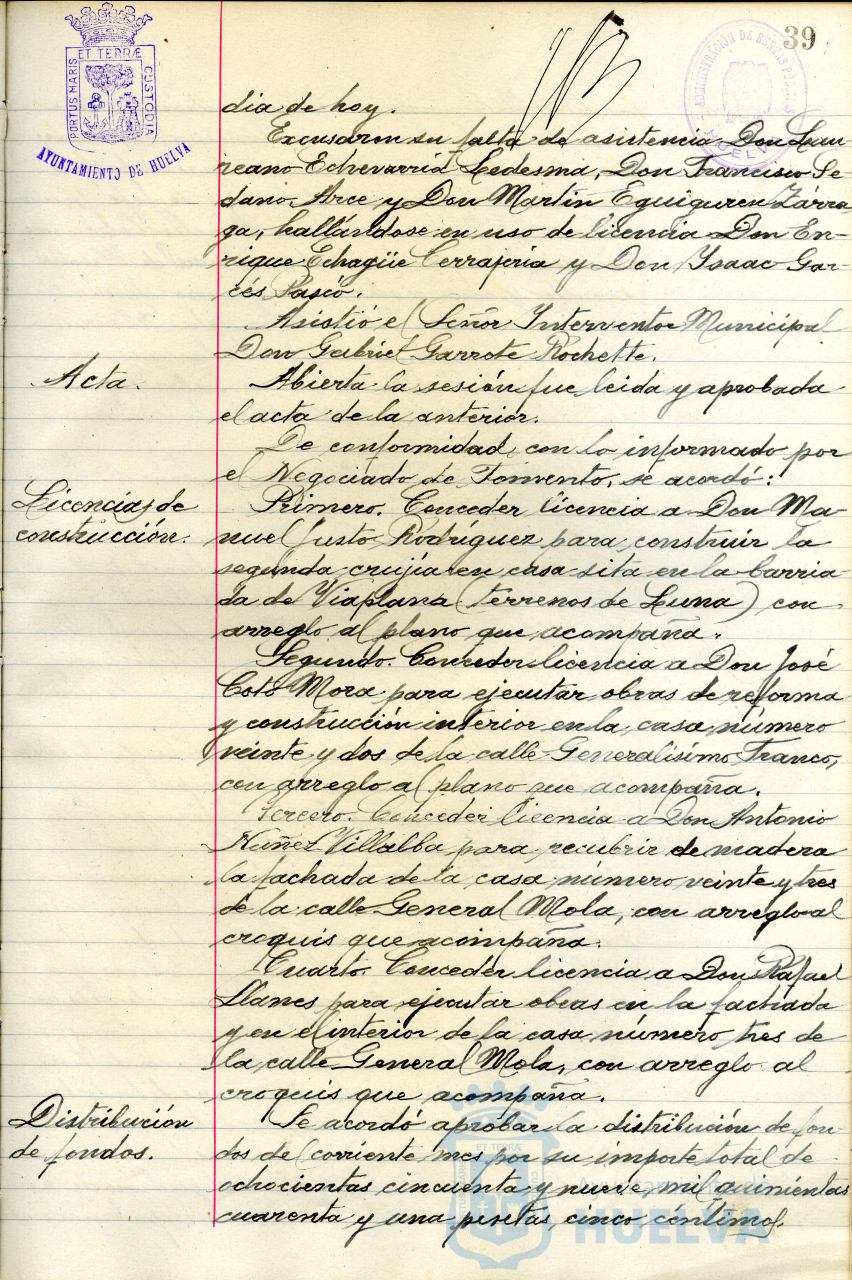 39
PORTUS MARIS ET TERRÆ CUSTODIA
AYUNTAMIENTO DE HUELVA
ADMINISTRACIÓN DE RENTAS PÚBLICAS
HUELVA
dia de hoy.
Excusaron su falta de asistencia Don Lau-
reano Echevarría Ledesma, Don Francisco Se-
dano Arce y Don Martin Eguiguren Zárra-
ga, hallándose en uso de licencia Don En-
rique Echagüe Cerrajeria y Don Isaac Gar-
cés Pasió.
Asistió el Señor Interventor Municipal
Don Gabriel Garrote Rochette.
Acta.
Abierta la sesión fue leida y aprobada
el acta de la anterior.
De conformidad con lo informado por
el Negociado de Fomento, se acordó:
Licencias de
construcción.
Primero. Conceder licencia a Don Ma-
nuel Justo Rodríguez para construir la
segunda crujía en casa sita en la barria-
da de Viaplana (terrenos de Luna) con
arreglo al plano que acompaña.
Segundo. Conceder licencia a Don José
Coto Mora para ejecutar obras de reforma
y construcción interior en la casa número
veinte y dos de la calle Generalísimo Franco,
con arreglo al plano que acompaña.
Tercero. Conceder licencia a Don Antonio
Núñez Villalba para recubrir de madera
la fachada de la casa número veinte y tres
de la calle General Mola, con arreglo al
croquis que acompaña.
Cuarto. Conceder licencia a Don Rafael
Llanes para ejecutar obras en la fachada
y en el interior de la casa número tres de
la calle General Mola, con arreglo al
croquis que acompaña.
Distribución
de fondos.
Se acordó aprobar la distribución de fon-
dos del corriente mes por su importe total de
ochocientas cincuenta y nueve mil quinientas
cuarenta y una pesetas, cinco céntimos.
HUELVA